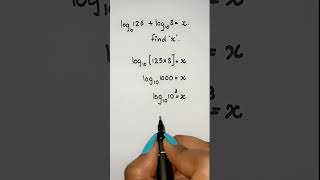 log₁₀125 + log₁₀8 = x.
find 'x'.
log₁₀[125×8] = x
log₁₀1000 = x
log₁₀10³ = x